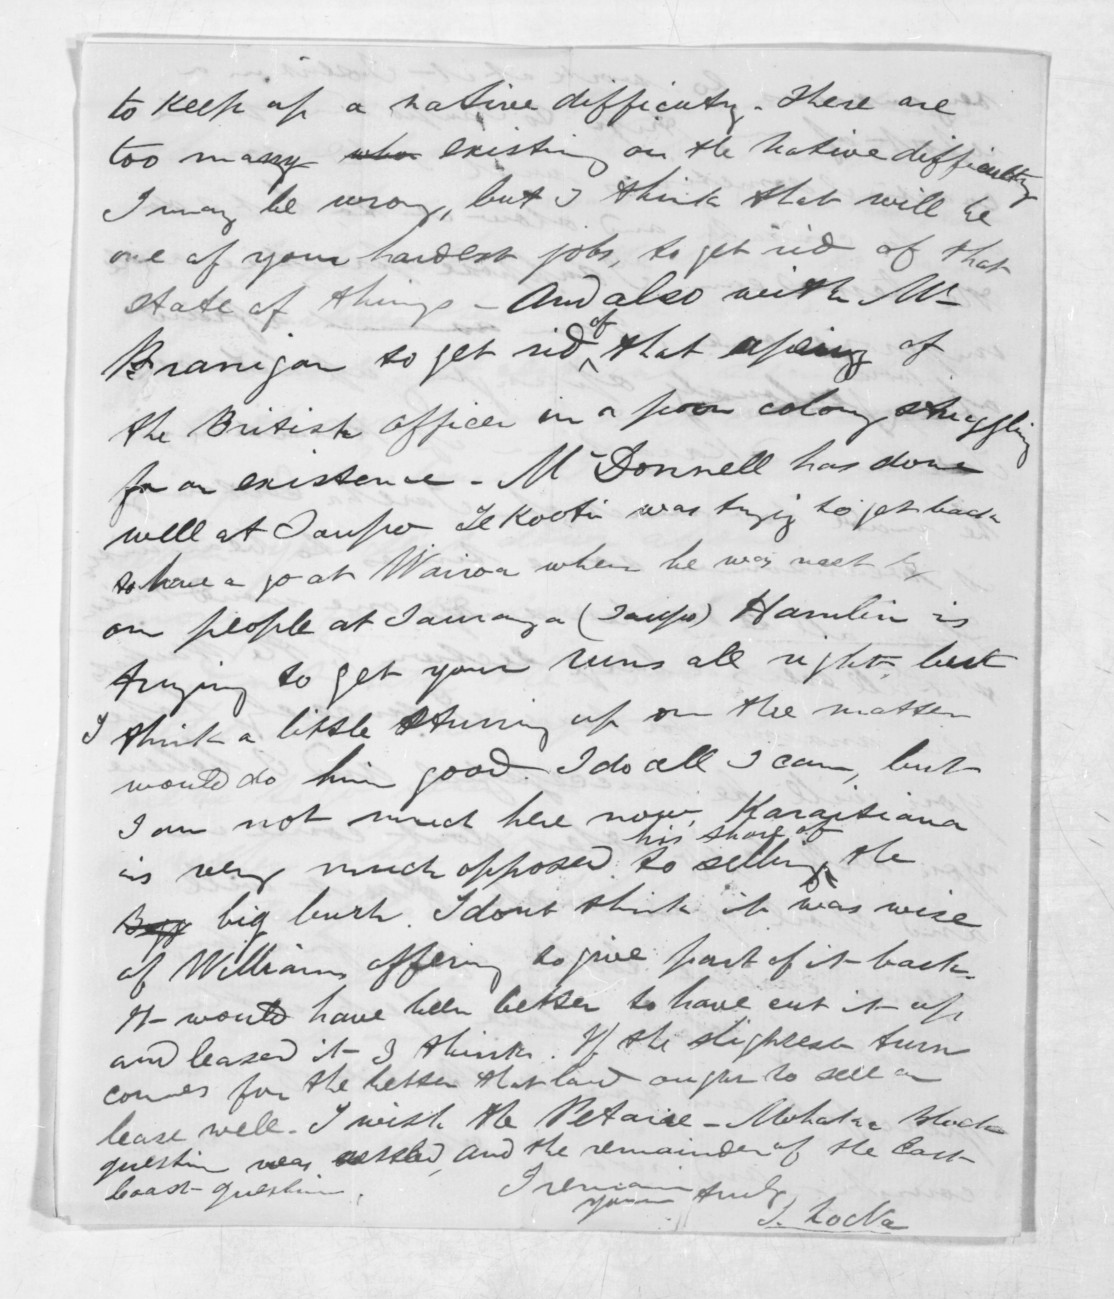 to keep up a native difficulty. There are
too many who existing on the Native difficulty
I may be wrong, but I think that will be
one of your hardest jobs, to get rid of that
state of things - And also with Mr
Branigan to get rid of that apeing of
the British officer in a poor colony struggling
for an existence - McDonnell has done
well at Taupo Te Kooti was trying to get back
to have a go at Wairoa when he was met by
our people at Tauranga (Taupo) Hamlin is
trying to get your runs all right, but
I think a little stirring up on the matter
would do him good. I do all I can, but
I am not much here now, Karaitiana
is very much opposed to selling his share of the
big bush. I dont think it was wise
of Williams offering to give part of it back.
It would have been better to have cut it up
and leased it I think. If the slightest turn
comes for the better that land ought to sell or
lease well. I wish the Petane - Mohaka block
question was settled, and the remainder of the East
Coast question.
I remain
yours truly
S. Locke